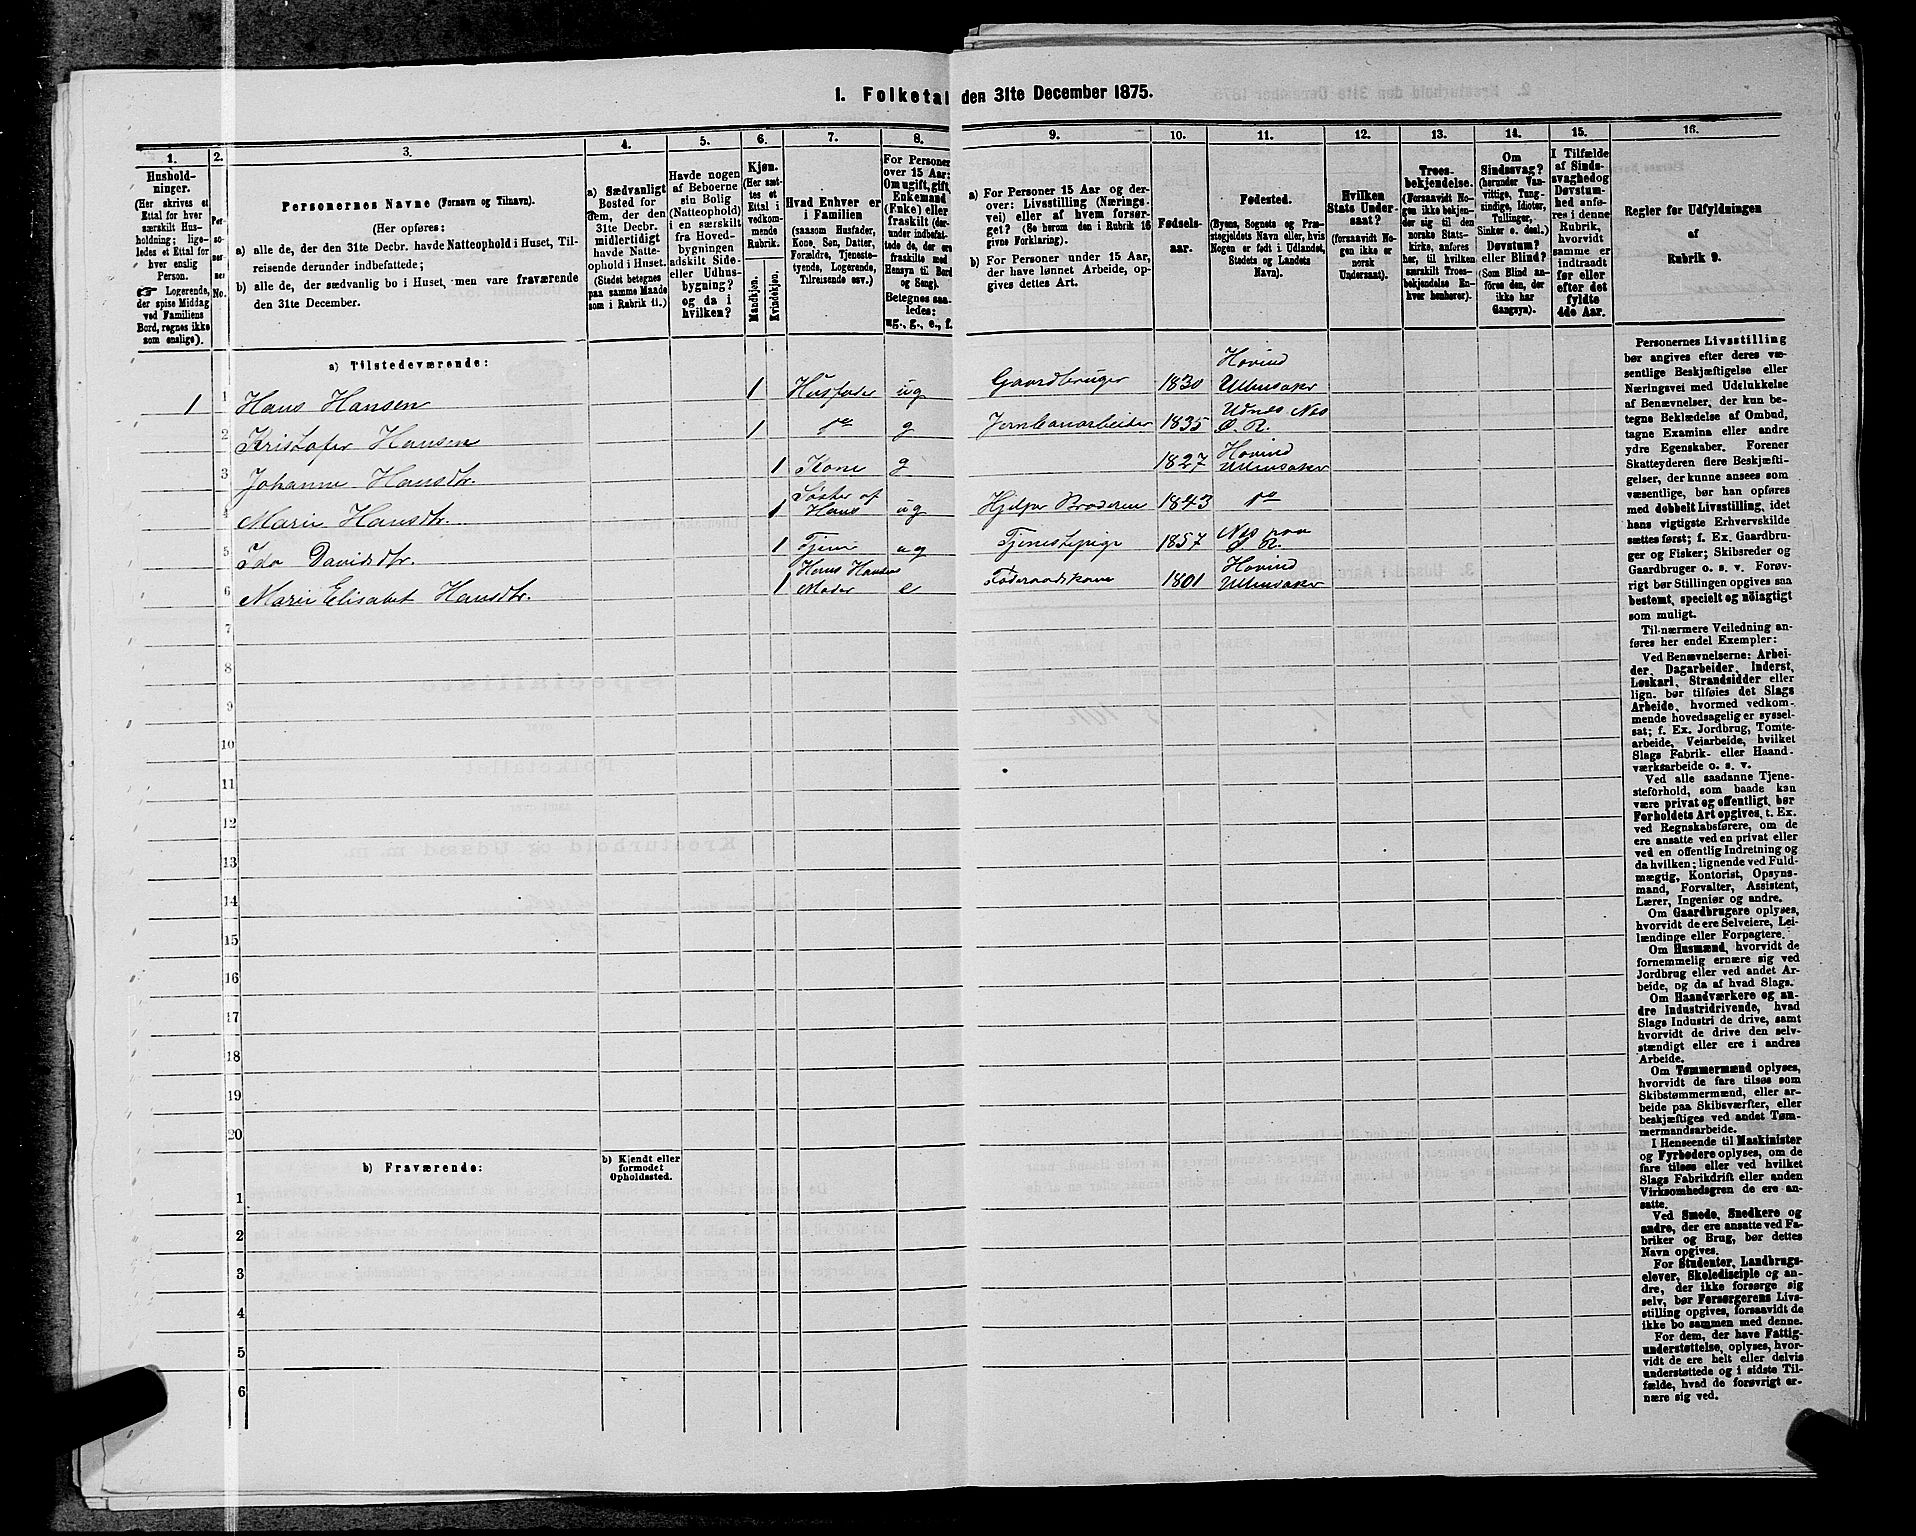 1. Folketal den 31te December 1875.
1.
2.
3.
4.
5.
6.
7.
8.
9.
10.
11.
12.
13.
14.
15.
16.
Hushold-
ninger.
(Her skrives et
Ettal for hver
særskilt Hus-
holdning; lige-
ledes et Ettal for
hver enslig
Person.
☞ Logerende,
der spise Middag
ved Familiens
Bord, regnes ikke
som enslige).
Per-
so-
ner-
nes
No.
Personernes Navne (Fornavn og Tilnavn).
(Her opføres:
a) alle de, der den 31te Decbr. havde Natteophold i Huset, Til-
reisende derunder indbefattede;
b) alle de, der sædvanlig bo i Huset, men vare fraværende
den 31te December.
a) Sædvanligt
Bosted for
dem, der den
31te Decbr.
midlertidigt
havde Natte-
ophold i Huset.
(Stedet betegnes
paa samme Maade
som i Rubrik 11.)
Havde nogen
af Beboerne
sin Bolig
(Natteophold)
i en særskilt
fra Hoved-
bygningen
adskilt Side-
eller Udhus-
bygning?
og da i
hvilken?
Kjøn.
(Her sæt-
tes et
Ettal i
vedkom-
mende
Rubrik.
Mandkjøn.
Kvindekjøn.
Hvad Enhver er
i Familien
(saasom Husfader,
Kone, Søn, Datter,
Forældre, Tjeneste-
tyende, Logerende,
Tilreisende osv.)
For Personer
over 15 Aar:
Om ugift, gift,
Enkemand
(Enke) eller
fraskilt (der-
under indbefat-
tede de, der ere
fraskilte med
Hensyn til Bord
og Seng).
Betegnes saa-
ledes:
ug., g., e., f.
a) For Personer 15 Aar og der-
over: Livsstilling (Nærings-
vei) eller af hvem forsør-
get? (Se herom den i Rubrik 16
givne Forklaring).
b) For Personer under 15 Aar,
der have lønnet Arbeide, op-
gives dettes Art.
Fødsels-
aar.
Fødested.
(Byens, Sognets og Præ-
stegjeldets Navn eller, hvis
Nogen er født i Udlandet,
Stedets og Landets
Navn).
Hvilken
Stats Under-
saat?
(forsaavidt No-
gen ikke er
norsk
Undersaat).
Troes-
bekjendelse.
(Forsaavidt No-
gen ikke bekjen-
der sig til den
norske Stats-
kirke, anføres
her, til hvilken
særskilt Troes-
bekjendelse En-
hver henhører).
Om
Sindssvag?
(herunder Van-
vittige, Tung-
sindige, Idioter,
Tullinger,
Sinker o. desl.)
Døvstum?
eller Blind?
(Som Blind an-
føres den, der
ikke har
Gangsyn).
I Tilfælde
af Sinds-
svaghed og
Døvstum-
hed anfø-
res i denne
Rubrik,
hvorvidt
samme er
indtraadt
før eller
efter det
fyldte
4de Aar.
Regler for Udfyldningen
af
Rubrik 9.
a) Tilstedeværende:
1 1 Hans Hansen 1 Husfader ug Gaardbruger 1830 Hovind Ullensaker
2 Kristofer Hansen 1 do g Jernbanarbeider 1835 Udnes Nes P. R.
3 Johanne Hansdtr. 1 Kone g 1827 Hovind Ullensaker
4 Marie Hansdtr. 1 Søster af Hans ug Hjelper Broderen 1843 do
5 Ida Davidsdtr. 1 Tjener ug Tjenestepige 1857 Nes paa R.
6 Marie Elisabet Hansdtr. 1 Hans Hansens Moder e Føderaadskone 1801 Hovind Ullensaker
7
8
9
10
11
12
13
14
15
16
17
18
19
20
b) Fraværende:
b) Kjendt eller
formodet
Opholdssted.
1
2
3
4
5
6
Personernes Livsstilling
bør angives efter deres væ-
sentlige Beskjæftigelse eller
Næringsvei med Udelukkelse
af Benævnelser, der kun be-
tegne Beklædelse af Ombud,
tagne Examina eller andre
ydre Egenskaber. Forener
Skatteyderen flere Beskjæfti-
gelser, der kunne ansees som
væsentlige, bør han opføres
med dobbelt Livsstilling, idet
hans vigtigste Erhvervskilde
sættes først; f. Ex. Gaardbru-
ger og Fisker; Skibsreder og
Gaardbruger o. s. v. Forøv-
rigt bør Stillingen opgives saa
bestemt, specielt og nöiagtigt
som muligt.
Til nærmere Veiledning an-
føres her endel Exempler:
Ved Benævnelserne: Arbei-
der, Dagarbeider, Inderst,
Løskarl, Strandsidder eller
lign. bør tilføies det Slags
Arbeide, hvormed vedkom-
mende hovedsagelig er syssel-
sat; f. Ex. Jordbrug, Tomte-
arbeide, Veiarbeide, hvilket
Slags Fabrik- eller Haand-
værksarbeide o. s. v.
Ved alle saadanne Tjene-
steforhold, som baade kan
være privat og offentligt, bør
Forholdets Art opgives, t. Ex.
ved Regnskabsførere, om de
ere ansatte ved en privat eller
ved en offentlig Indretning og
da hvilken; lignende ved Fuld-
mægtig, Kontorist, Opsyns-
mand, Forvalter, Assistent,
Lærer, Ingeniør og andre.
Om Gaardbrugere oplyses,
hvorvidt de ere Selveiere, Lei-
lændinge eller Forpagtere.
Om Husmænd, hvorvidt de
fornemmelig ernære sig ved
Jordbrug eller ved andet Ar-
beide, og da af hvad Slags.
Om Haandværkere og an-
dre Industridrivende, hvad
Slags Industri de drive, samt
hvorvidt de drive den selv-
stændigt eller ere i andres
Arbeide.
Om Tømmermænd oplyses,
hvorvidt de fare tilsøs som
Skibstømmermænd, eller ar-
beide paa Skibsværfter, eller
beskjæftiges ved andet Tøm-
mermandsarbeide.
I Henseende til Maskinister
og Fyrbødere oplyses, om de
fare tilsøs eller ved hvilket
Slags Fabrikdrift eller anden
Virksomhedsgren de ere an-
satte.
Ved Smede, Snedkere og
andre, der ere ansatte ved Fa-
briker og Brug, bør dettes
Navn opgives.
For Studenter, Landbrugs-
elever, Skoledisciple og an-
dre, der ikke forsørge sig
selv, bør Forsørgerens Livs-
stilling opgives, forsaavidt de
ikke bo sammen med denne.
For dem, der have Fattig-
understøttelse, oplyses, hvor-
vidt de ere helt eller delvis
understøttede og i sidste Til-
fælde, hvad de forøvrigt er-
nære sig ved.